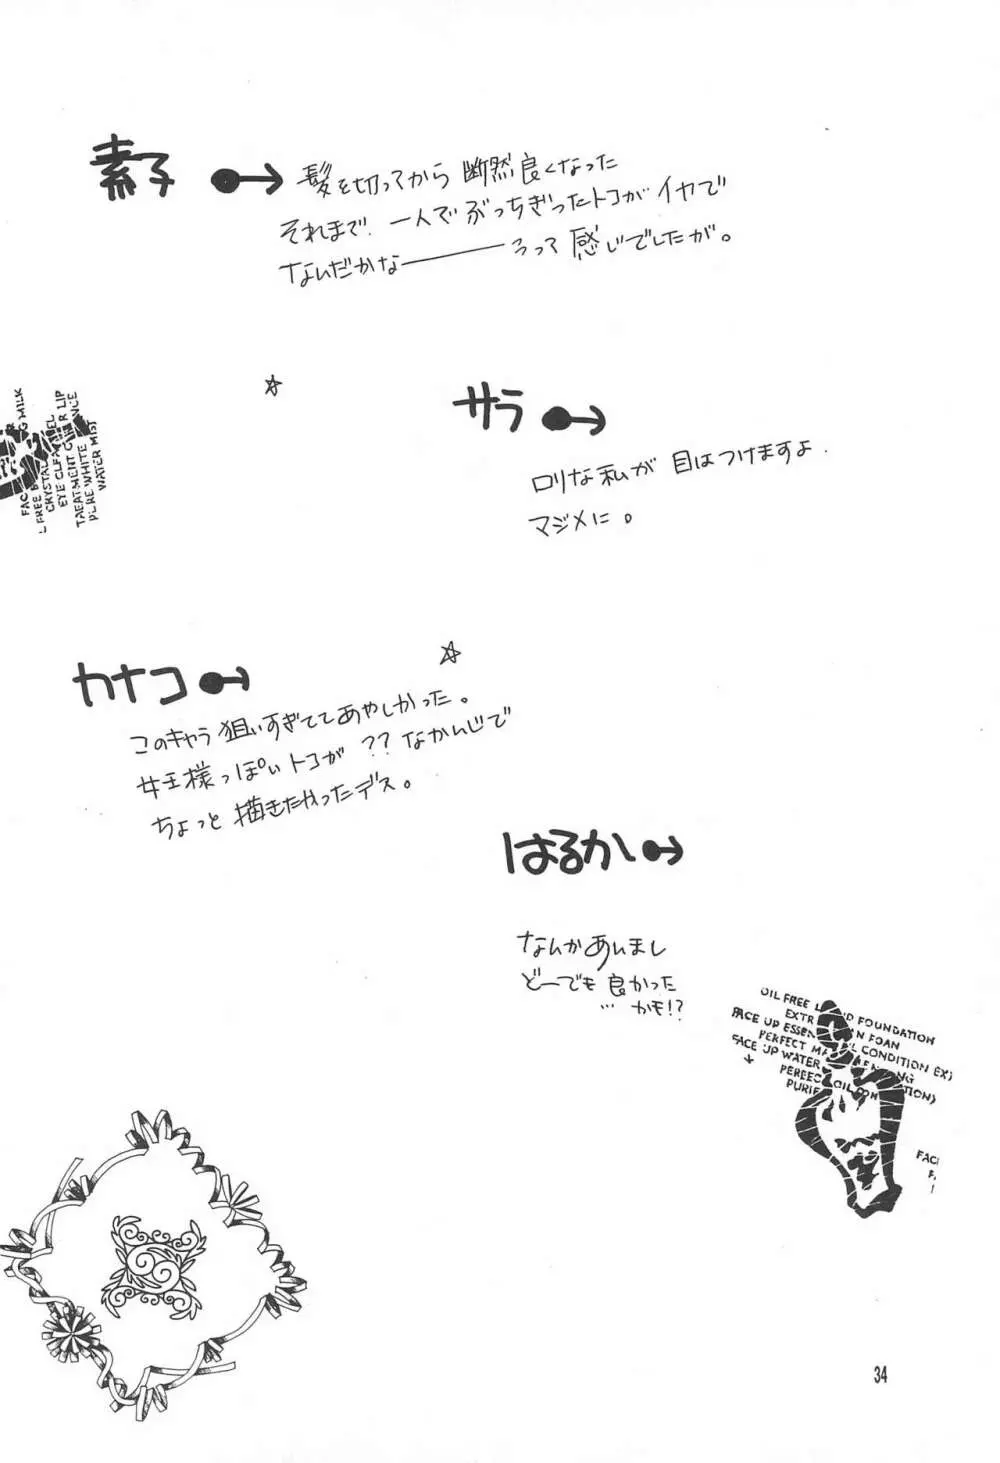 素子
髪を切ってから 断然良くなった
それまで、一人でぶっちぎったトコがイヤで
なんだかな―――うって感じでしたが。
MILK
EYE CLEAN
PURE WHITE
WATER MIST
サラ
ロリな私が 目はつけますよ.
マジメに。
カナコ
このキャラ狙いすぎててあやしかった。
女王様っぽいトコが ?? なかんじで
ちょっと描きたかったデス。
はるか
なんかあいまし
どーでも良かった
… かも!?
OIL FREE FOUNDATION
FOAM
FACE UP CONDITION
PERFECT
FACE UP WATER
34